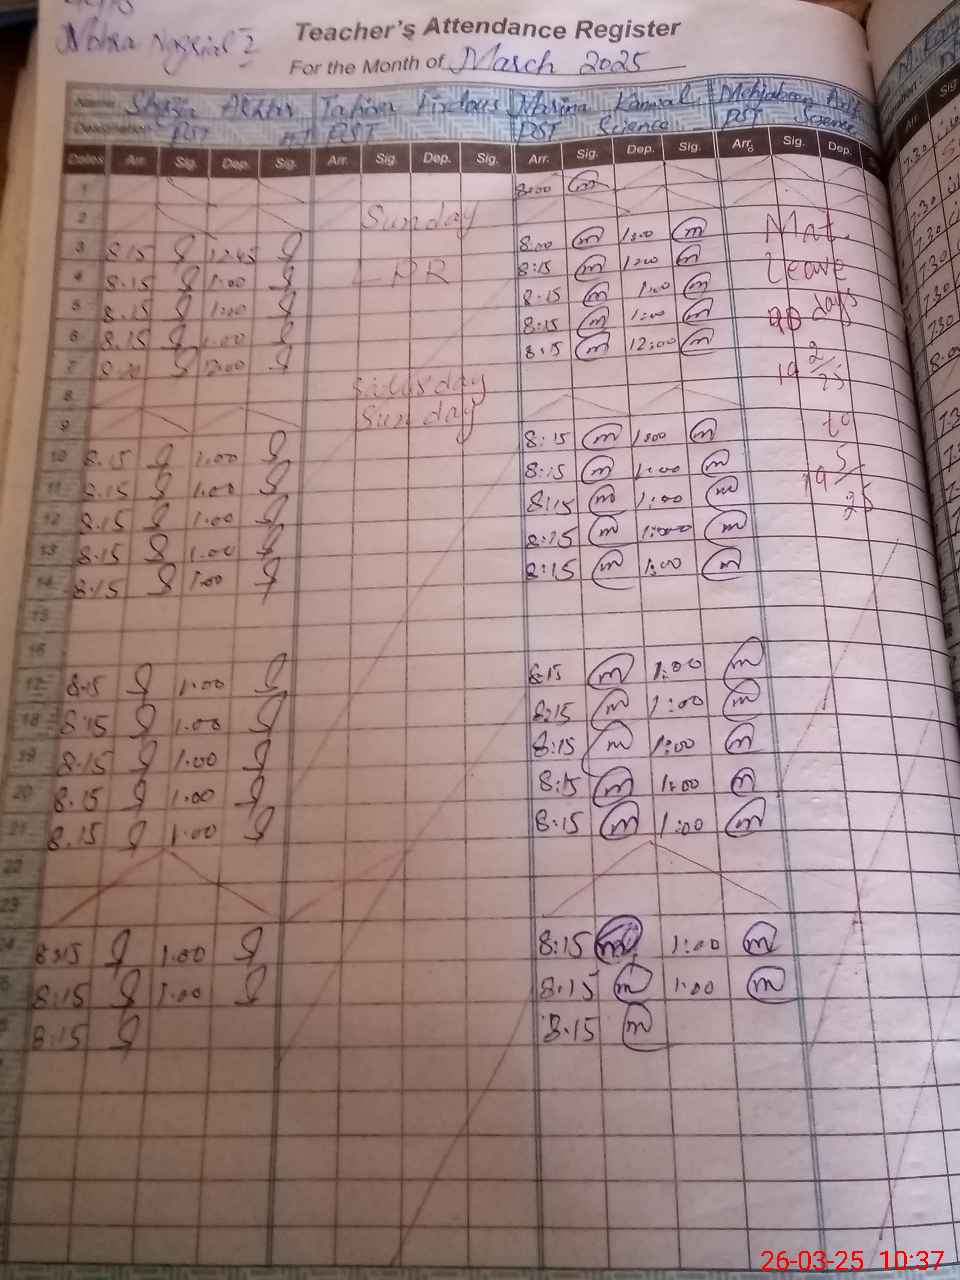 Teacher's Attendance Register
For the Month of March 2025
Name Shazia Akhtar Tahira Firdous Nasima Kanwal Mehjabeen
Designation PST PST PST Science PST Science
Dates Arr. Sig. Dep. Sig. Arr. Sig. Dep. Sig. Arr. Sig. Dep. Sig. Arr. Sig. Dep.
1 8:00 m
2 Sunday
3 8.15 12.45 8.00 m 1:00 m Mat.
4 8.15 1:00 LPR 8:15 m 1:00 m Leave
5 8.15 1:00 8:15 m 1:00 m 90 days
6 8.15 1.00 8:15 m 1:00 m
7 8.00 12:00 8:15 m 12:00 m 19 2/25
8 Saturday
9 Sunday to
10 8.15 1.00 8:15 m 1:00 m 19 5/25
11 8.15 1.00 8:15 m 1:00 m
12 8.15 1.00 8:15 m 1:00 m
13 8.15 1.00 8:15 m 1:00 m
14 8.15 1.00 8:15 m 1:00 m
15
16
17 8.15 1.00 8:15 m 1:00 m
18 8.15 1.00 8:15 m 1:00 m
19 8.15 1.00 8:15 m 1:00 m
20 8.15 1.00 8:15 m 1:00 m
21 8.15 1.00 8:15 m 1:00 m
22
23
8:15 1.00 8:15 m 1:00 m
8.15 1.00 8:15 m 1:00 m
8.15 8.15 m
26-03-25 10:37